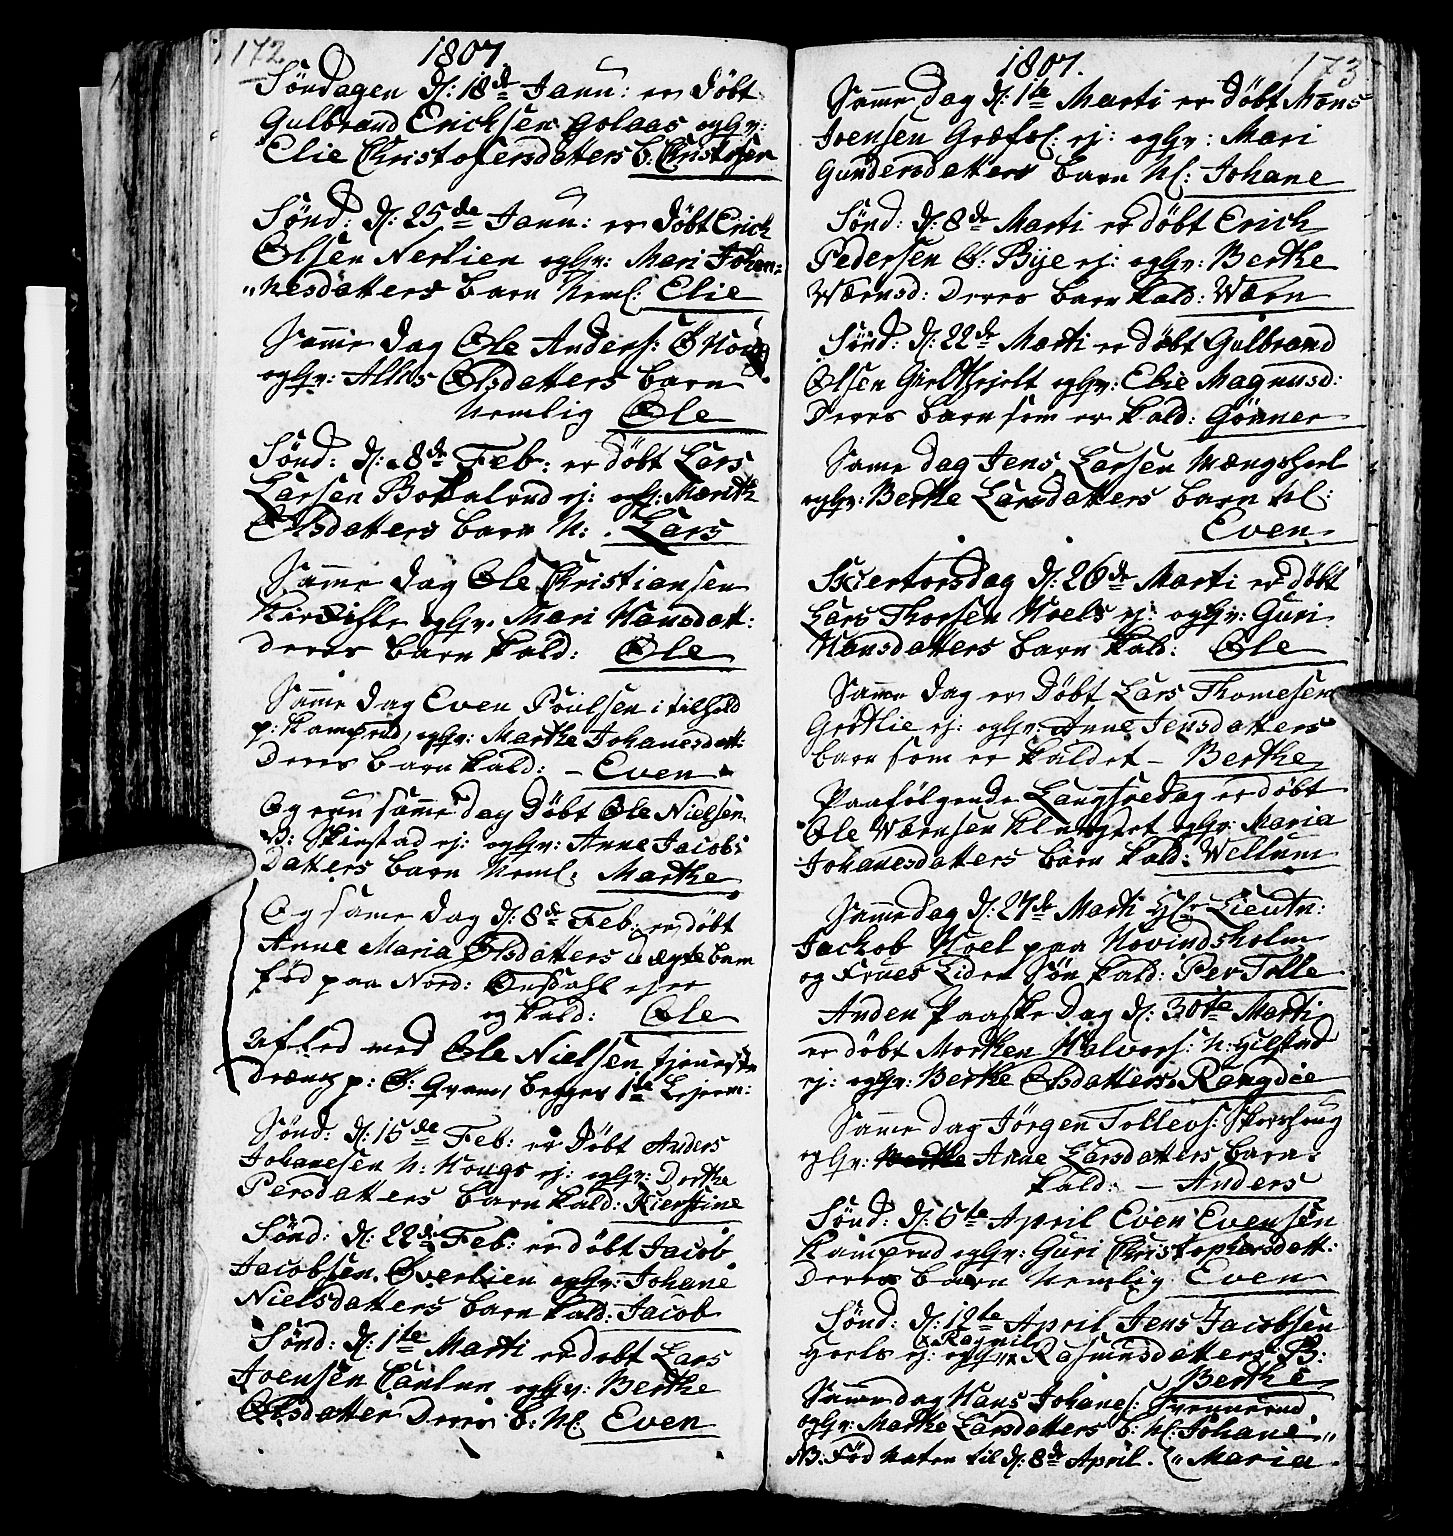 172
1807.
Søndagen d: 18de Janu: er døbt
Gulbrand Erichsen Golaas oghv:
Elie Christofersdatters b. Christofer
Sønd: d: 25de Janu: er døbt Erich
Olsen Nerlien oghv: Mari Johan=
nesdatters barn Neml: Elie
Samme dag Ole Anders:
oghv: Allis Olsdatters barn
Nemlig Ole
Sønd: d: 8de Feb: er døbt Lars
Larsen Bokalrud ej: oghv: Marith
Olsdatters barn N: Lars
Samme dag Ole Christiansen
oghv. Mari Hansdatt:
deres barn kald: Ole
Samme dag Even Poulsen i tilhold
p: Kamprud, oghv: Marthe Johanesdatt:
Deres barn kald: - Even
Og samme dag døbt Ole Nielsen
Skinstad ej: oghv: Anne Jacobs
datters barn Neml: Marthe
Og samme dag d: 8de Feb: er døbt
Anne Maria Olsdatters uægte barn
fød paa Nord:
og kald: Ole
afled med Ole Nielsen tjeneste
dræng p: begges 1te Lejerm:
Sønd: d: 15de Feb: er døbt Anders
Johanesen N: Hougs ej: oghv: Dorthe
Persdatters barn kald: Kierstine
Sønd: d: 22de Feb: er døbt Jacob
Jacobsen Øverlien oghv: Johane
Nielsdatters barn kald: Jacob
Sønd: d: 1te Marti er døbt Lars
Joensen oghv: Berthe
Olsdatter Deres b: N: Even
173
1807.
Samme dag d: 1te Marti er døbt Mons
Joensen Græfs: ej: oghv: Mari
Gundersdatters barn N: Johane
Sønd: d: 8de Marti er døbt Erich
Pedersen S: Bye ej: oghv: Berthe
Wærnsd: Deres barn kald: Wærn
Sønd: d: 22de Marti er døbt Gulbrand
Olsen oghv: Elie Magnusd:
Deres barn som er kald: Gønner
Same dag Jens Larsen Mængshoel
oghv: Berthe Larsdatters barn N:
Even
Skiertorsdag d: 26de Marti er døbt
Lars Thorsen Hoels ej: oghv: Guri
Hansdatters barn kald: Ole
Samme dag er døbt Lars Thomesen
Grøtlie ej: oghv: Anne Jensdatters
barn som er kaldet - Berthe
Paafølgende Langfredag er døbt
Ole Wærnsen oghv: Maria
Johanesdatters barn kald: Wellum
Samme dag d: 27de Marti Hr Lieutn:
Jackob Hoel paa Hovindsholm
og Frues Liden Søn kald: Per Tolle
Anden Paaske Dag d: 30te Marti
er døbt Morthen Halvors: N: Gilstad
ej: oghv: Berthe Olsdatters Rangdie
Samme dag Jørgen Tollevs: Skovhoug
oghv: Anne Larsdatters barn
kald: - Anders
Sønd: d: 5te April Even Evensen
Kamprud oghv: Guri Christophersdatt:
Deres barn Nemlig Even
Sønd: d: 12te April Jens Jacobsen
x Ragnild
Hoels ej: oghv: x Rasmusdatters B:
Berthe
Samme dag Hans Johanes:
oghv: Marthe Larsdatters b: N: Johane
NB. Fød Naten til d: 8de April. " Maria